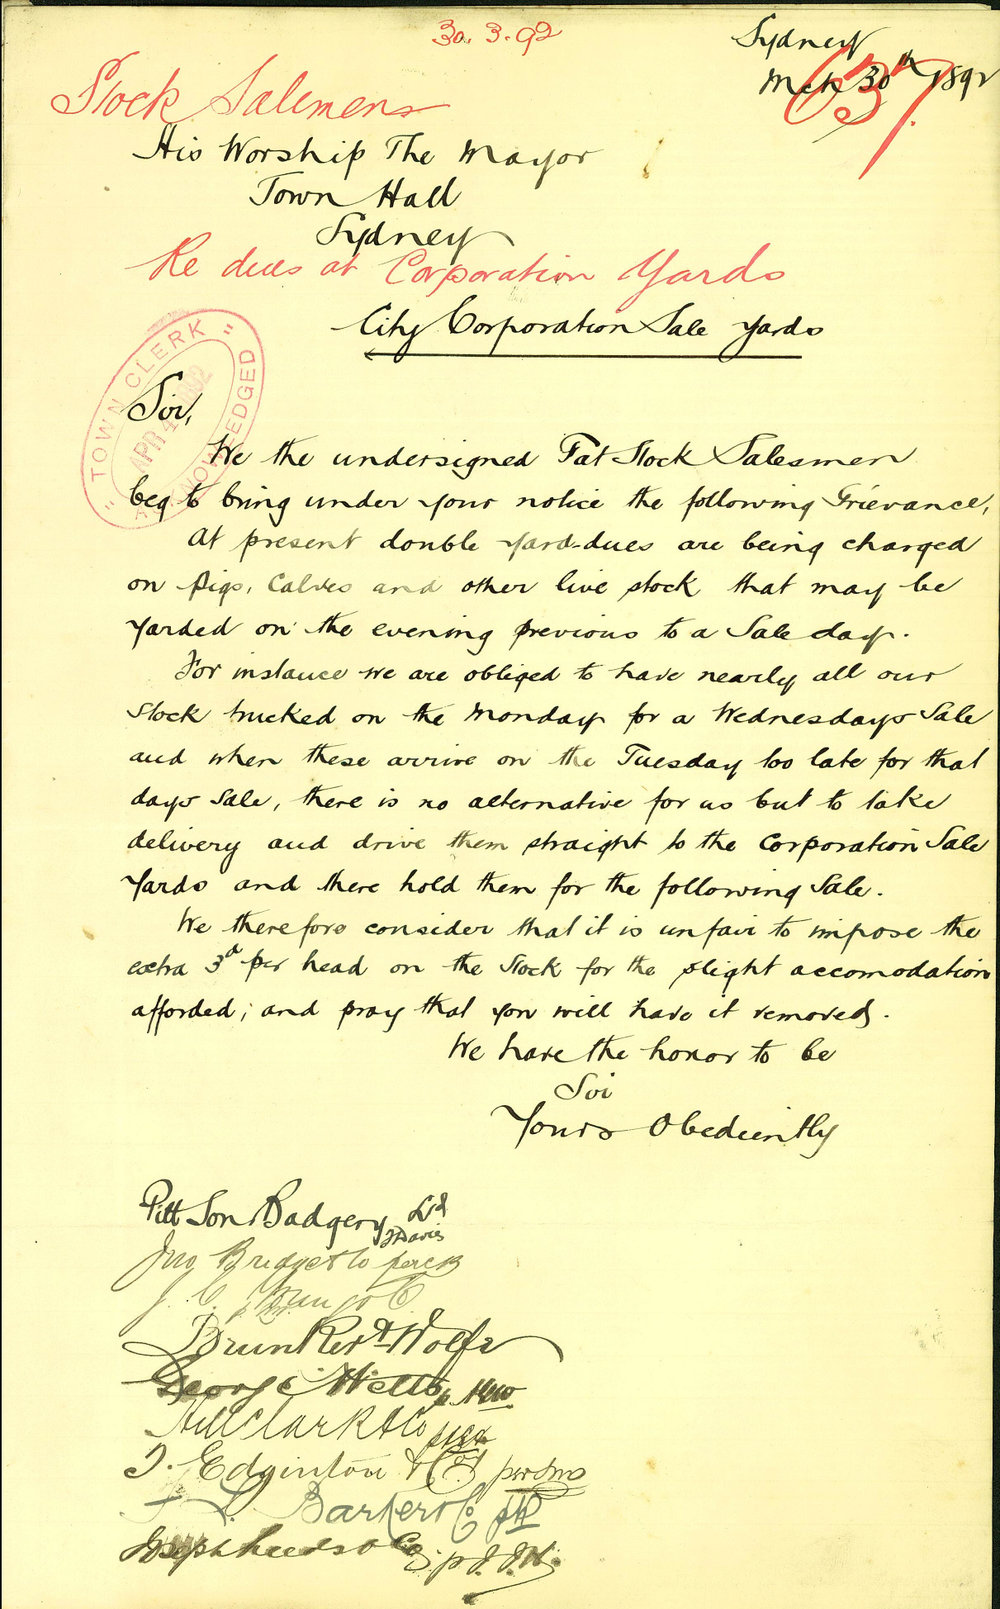 30. 3. 92
Sydney
Mch 30th 1892
637.
Stock Salemens
His Worship The Mayor
Town Hall
Sydney
Re dues at Corporation Yards
City Corporation Sale Yards
TOWN CLERK
APR 4 1892
ACKNOWLEDGED
Sir,
We the undersigned Fat Stock Salesmen
beg to bring under your notice the following Grievance,
At present double yard-dues are being charged
on pigs, Calves and other live stock that may be
yarded on the evening previous to a Sale day.
For instance we are obliged to have nearly all our
Stock trucked on the Monday for a Wednesdays Sale
and when these arrive on the Tuesday too late for that
days Sale, there is no alternative for us but to take
delivery and drive them straight to the Corporation Sale
Yards and there hold them for the following Sale.
We therefore consider that it is unfair to impose the
extra 3d per head on the Stock for the slight accomodation
afforded; and pray that you will have it removed.
We have the honor to be
Sir
Yours Obediently
Pitt Son Badgery Ld
J Davis
Jno Bridge & Co per
J. C.
Brunker & Wolfe
George Wells p
Hill Clark & Co p
T. Edginton & Co per Jno
F L Barker & Co
Joseph Leeds & Co p J. J. H.